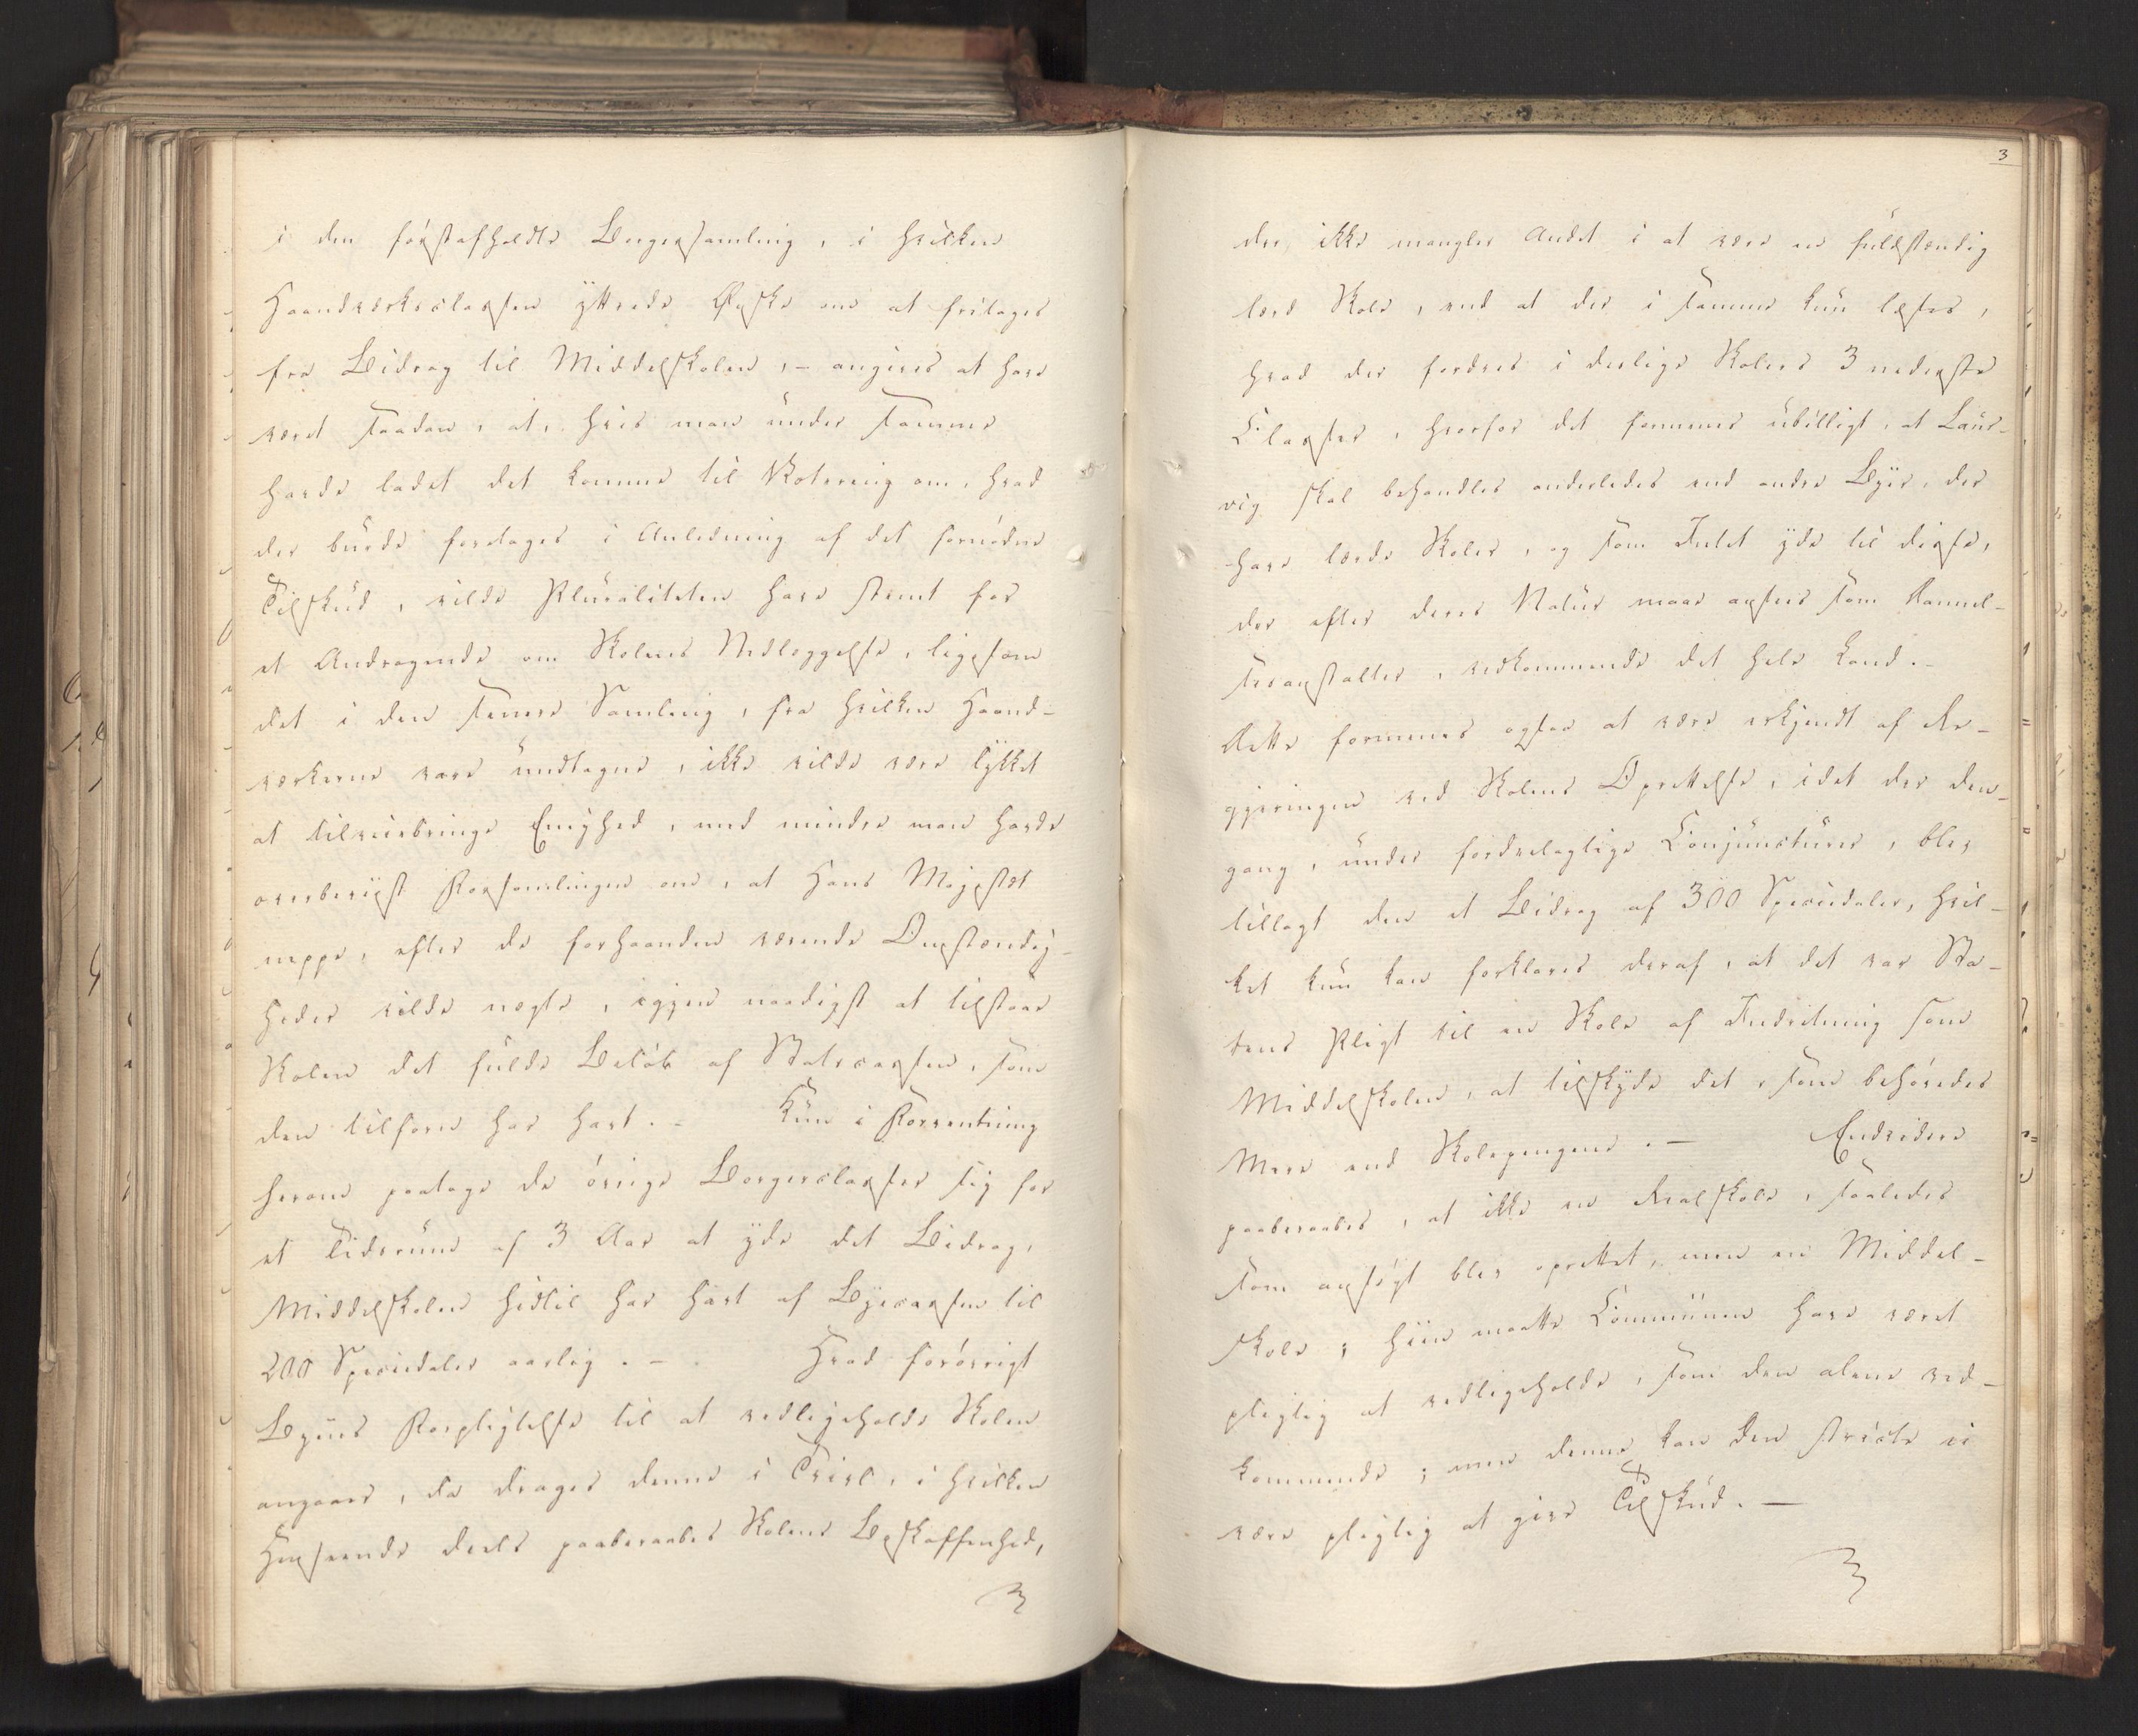 i den förstafholdte Borgersamling, i hvilken
Haandværksclassen yttrede Ønske om at fritages
fra Bidrag til Middelskolen, – angives at have
været saadan, at, hvis man under samme
havde ladet det komme til Votering om, hvad
der burde foretages i Anledning af det fornødne
Tilskud, vilde Pluraliteten have stemt for
et Andragende om Skolens Nedlæggelse, ligesom
det i den senere Samling, fra hvilken Haand-
værkerne vare undtagne, ikke vilde være lykket
at tilveiebringe Enighed, med mindre man havde
overbeviist Forsamlingen om, at Hans Majestæt
neppe, efter de forhaanden værende Omstændig-
heder vilde nægte, igjen naadigst at tilstaae
Skolen det fulde Beløb af Statscassen, som
den tilforn har havt. – Kun i Forventning
herom paatage de övrige Borgerclasser sig for
et Tidsrum af 3 Aar at yde det Bidrag,
Middelskolen hidtil har havt af Byecassen til
200 Speciedaler aarlig. – Hvad forövrigt
Byens Forpligtelse til at vedligeholde Skolen
angaaer, da drages denne i Tvivl, i hvilken
Henseende deels paaberaabes Skolens Beskaffenhed,
3
der, ikke mangler Andet i at være en fuldstændig
lærd Skole, end at der i samme kun læses,
hvad der fordres i deslige Skolers 3 nederste
Classer, hvorfor det formenes ubilligt, at Laur-
vig skal behandles anderledes end andre Byer, der
have lærde Skoler, og som Intet yde til disse,
der efter deres Natur maae ansees som Dannel-
sesanstalter, vedkommende det hele Land. –
Dette formenes ogsaa at være erkjendt af Re-
gjeringen ved Skolens Oprettelse, idet der den-
gang, under fordeelagtige Conjuncturer, blev
tillagt den et Bidrag af 300 Speciedaler, hvil-
ket kun kan forklares deraf, at det var Sta-
tens Pligt til en Skole af Indretning som
Middelskolen, at tilskyde det, som behøvedes
Mere end Skolepengene. – Endvidere
paaberaabes, at ikke en Realskole, saaledes
som ansögt blev oprettet, men en Middel-
skole; hiin maatte Communen have været
pligtig at vedligeholde, som den alene ved-
kommende; men denne kan den stricte ei
være pligtig at give Tilskud. –